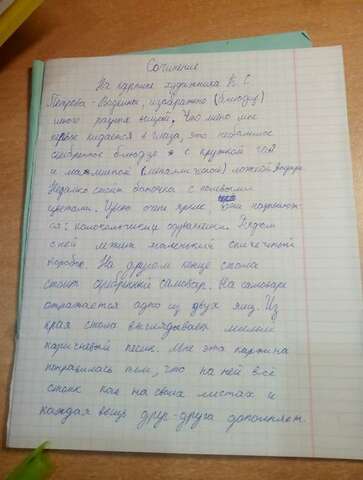 Сочинение
На картине художника К. С.
Петрова-Водкина, изображено (блюдце)
много разных вещей. Что лично мне
первое кидается в глаза, это небольшое
серебряное блюдце с кружкой чая
и маленькой (металической) ложкой внутри.
Недалеко стоит баночка с полевыми
цветами. Цветы очень яркие они называют-
ся: колокольчики одуванчики. Рядом
с ней лежит маленький спичечный
коробок. На другом конце стола
стоит серебрянный самовар. На самоваре
отражается одно из двух яиц. Из
края стола выглядывает милый
коричневый песик. Мне эта картина
понравилась тем, что на ней всё
стоит как на своих местах и
каждая вещь друг-друга дополняет.